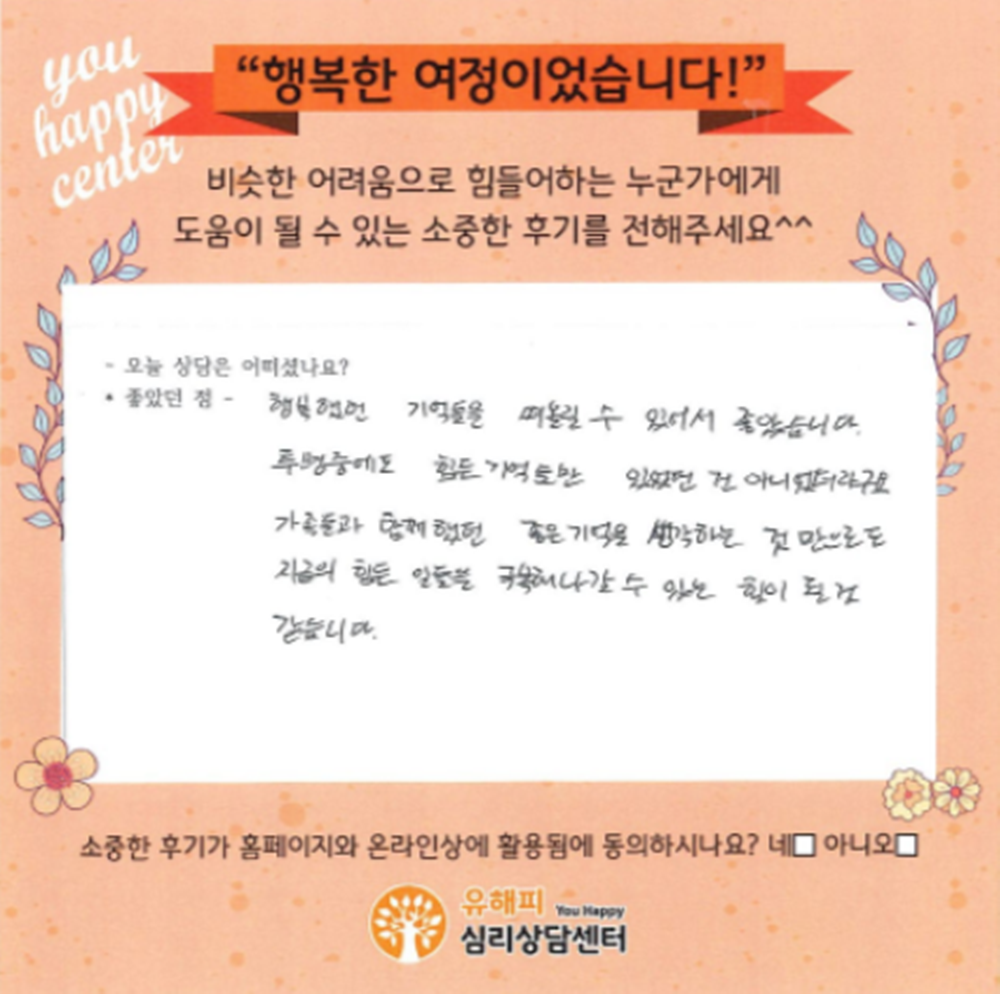 you
happy
center
“행복한 여정이었습니다!”
비슷한 어려움으로 힘들어하는 누군가에게
도움이 될 수 있는 소중한 후기를 전해주세요^^
- 오늘 상담은 어떠셨나요?
* 좋았던 점 - 행복했던 기억들을 떠올릴 수 있어서 좋았습니다.
투병중에도 힘든 기억들만 있었던 건 아니었더라구요
가족들과 함께 했던 좋은 기억을 생각하는 것 만으로도
지금의 힘든 일들을 극복해나갈 수 있는 힘이 될 것
같습니다.
소중한 후기가 홈페이지와 온라인상에 활용됨에 동의하시나요? 네□ 아니오□
유해피 You Happy
심리상담센터